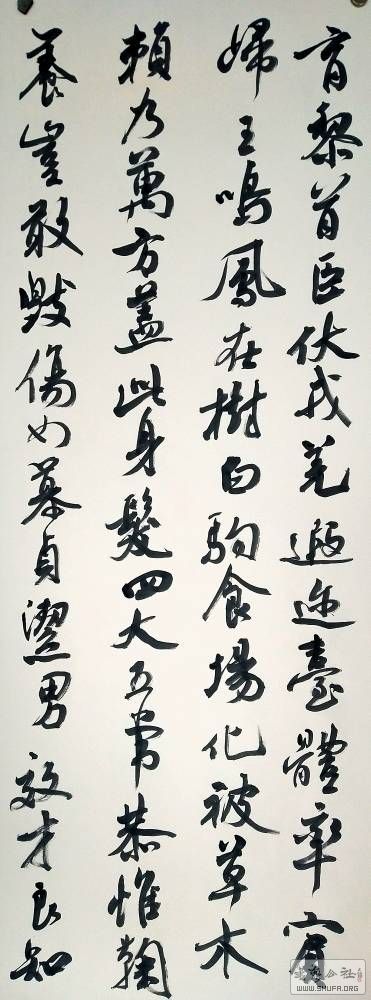 育黎首臣伏戎羌遐迩壹體率賓
歸王鳴鳳在樹白駒食場化被草木
賴及萬方蓋此身髮四大五常恭惟鞠
養豈敢毀傷女慕貞潔男效才良知
书法公社
WWW.SHUFA.ORG